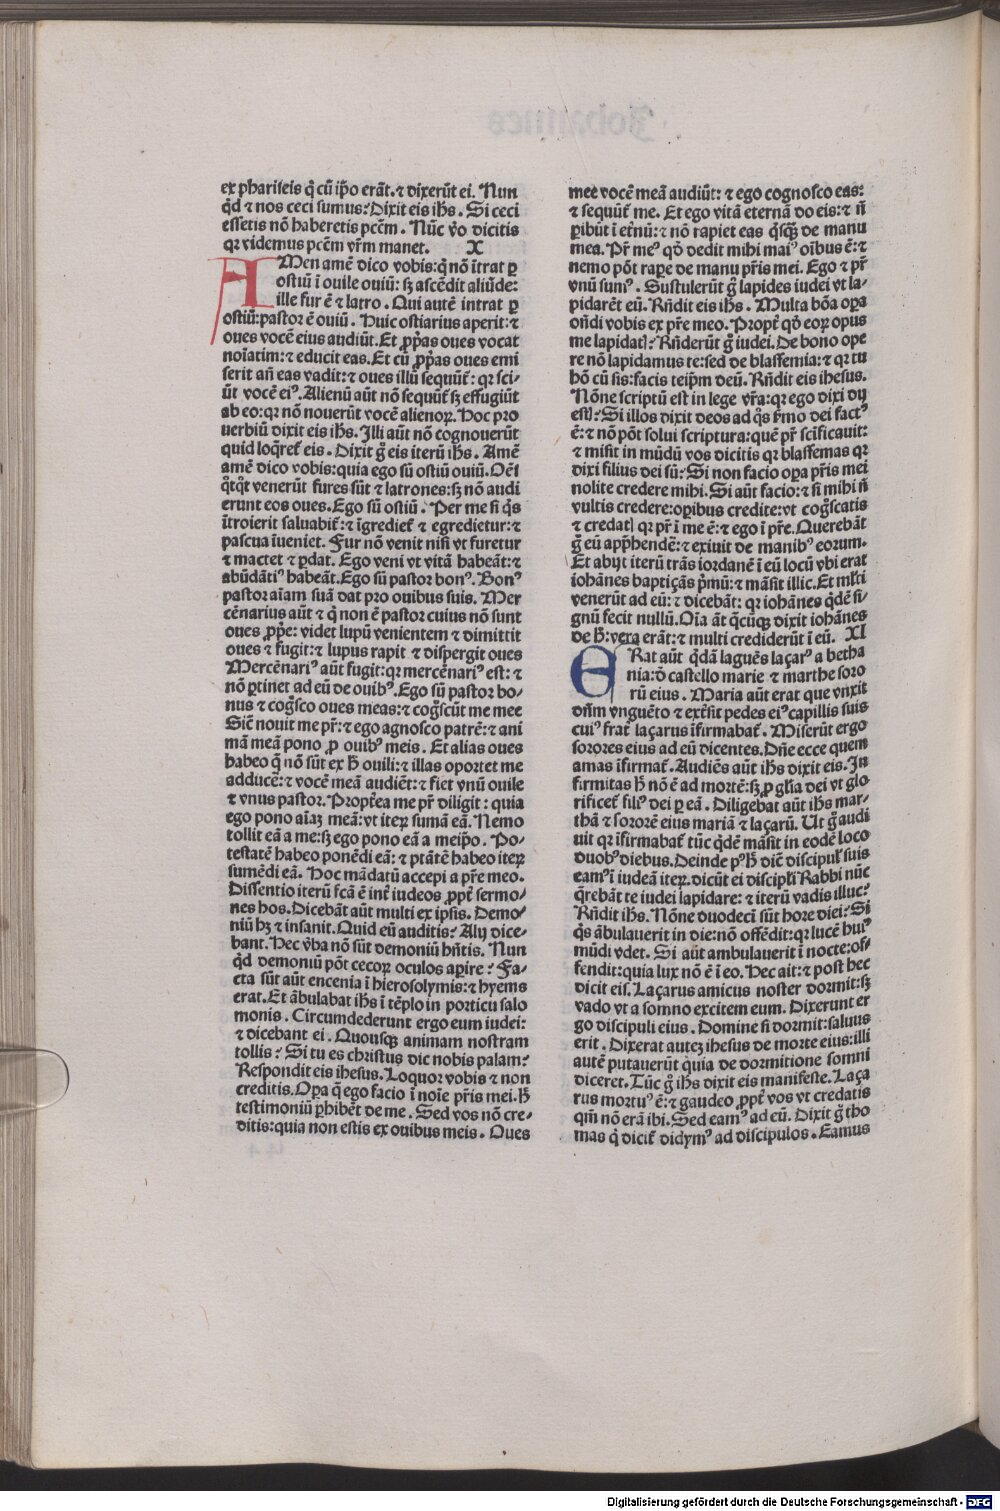 ex phariseis q̄ cū ip̄o erāt. ⁊ dixerūt ei. Nun
q̄d ⁊ nos ceci sumus? Dixit eis ih̄s. Si ceci
essetis nō haberetis pc̄cm̄. Nūc v̄o dicitis
qꝛ videmus pc̄cm̄ vr̄m manet. X
AMen amē dico vobis: q̄ nō īrat ꝑ
ostiū ī ouile ouiū: sꝫ ascēdit aliūde:
ille fur ē ⁊ latro. Qui autē intrat ꝑ
ostiū: pastor ē ouiū. Huic ostiarius aperit: ⁊
oues vocē eius audiūt. Et ꝓp̄as oues vocat
noīatim: ⁊ educit eas. Et cū ꝓp̄as oues emi
serit añ eas vadit: ⁊ oues illū sequūt᷑: qꝛ sci⸗
ūt vocē eiꝰ. Alienū aūt nō sequūt᷑ sꝫ effugiūt
ab eo: qꝛ nō nouerūt vocē alienoꝝ. Hoc pro
uerbiū dixit eis ih̄s. Illi aūt nō cognouerūt
quid loq̄ret᷑ eis. Dixit g̊ eis iterū ih̄s. Amē
amē dico vobis: quia ego sū ostiū ouiū. Oēs
q̊tq̊t venerūt fures sūt ⁊ latrones: sꝫ nō audi
erunt eos oues. Ego sū ostiū. Per me si q̄s
ītroierit saluabit᷑: ⁊ īgrediet᷑ ⁊ egredietur: ⁊
pascua īueniet. Fur nō venit nisi vt furetur
⁊ mactet ⁊ ꝑdat. Ego veni vt vitā habeāt: ⁊
abūdātiꝰ habeāt. Ego sū pastor bonꝰ. Bonꝰ
pastor aīam suā dat pro ouibus suis. Mer
cēnarius aūt ⁊ q̄ non ē pastor cuius nō sunt
oues ꝓp̄e: videt lupū venientem ⁊ dimittit
oues ⁊ fugit: ⁊ lupus rapit ⁊ dispergit oues
Mercēnariꝰ aūt fugit: qꝛ mercēnariꝰ est: ⁊
nō ꝑtinet ad eū de ouibꝰ. Ego sū pastor bo⸗
nus ⁊ cog̊sco oues meas: ⁊ cog̊scūt me mee
Sic̄ nouit me pr̄: ⁊ ego agnosco patrē: ⁊ ani
mā meā pono ꝓ ouibꝰ meis. Et alias oues
habeo q̄ nō sūt ex h̄ ouili: ⁊ illas oportet me
adducē: ⁊ vocē meā audiēt: ⁊ fiet vnū ouile
⁊ vnus pastor. Propt̄ea me pr̄ diligit: quia
ego pono aīaꝫ meā: vt iteꝝ sumā eā. Nemo
tollit eā a me: sꝫ ego pono eā a meip̄o. Po⸗
testatē habeo ponēdi eā: ⁊ ptātē habeo iteꝝ
sumēdi eā. Hoc mādatū accepi a pr̄e meo.
Dissentio iterū fc̄a ē int̄ iudeos ꝓpt̄ sermo⸗
nes hos. Dicebāt aūt multi ex ipsis. Demo⸗
niū hꝫ ⁊ insanit. Quid eū auditis? Alij dice⸗
bant. Hec v̄ba nō sūt demoniū hn̄tis. Nun
q̄d demoniū pōt cecoꝝ oculos aꝑire? Fa⸗
cta sūt aūt encenia ī hierosolymis: ⁊ hyems
erat. Et ābulabat ih̄s ī tēplo in porticu salo
monis. Circumdederunt ergo eum iudei:
⁊ dicebant ei. Quousqꝫ animam nostram
tollis? Si tu es christus dic nobis palam?
Respondit eis ihesus. Loquor vobis ⁊ non
creditis. Oꝑa q̄ ego facio ī noīe pr̄is mei. h̄
testimoniū ꝑhibēt de me. Sed vos nō cre⸗
ditis: quia non estis ex ouibus meis. Oues
mee vocē meā audiūt: ⁊ ego cognosco eas:
⁊ sequūt᷑ me. Et ego vitā eternā do eis: ⁊ ñ
ꝑibūt ī et̄nū: ⁊ nō rapiet eas q̄sqꝫ de manu
mea. Pr̄ meꝰ qd̄ dedit mihi maiꝰ oībus ē: ⁊
nemo pōt raꝑe de manu pr̄is mei. Ego ⁊ pr̄
vnū sumꝰ. Sustulerūt g̊ lapides iudei vt la⸗
pidarēt eū. Rn̄dit eis ih̄s. Multa bōa oꝑa
on̄di vobis ex pr̄e meo. Propt̄ qd̄ eoꝝ opus
me lapidatꝭ? Rn̄derūt g̊ iudei. De bono ope
re nō lapidamus te: sed de blasfemia: ⁊ qꝛ tu
hō cū sis: facis teip̄m deū. Rn̄dit eis ihesus.
Nōne scriptū est in lege vr̄a: qꝛ ego dixi dij
estꝭ? Si illos dixit deos ad q̊s ẜmo dei factꝰ
ē: ⁊ nō pōt solui scriptura: quē pr̄ sc̄ificauit:
⁊ misit in mūdū vos dicitis qꝛ blasfemas qꝛ
dixi filius dei sū? Si non facio oꝑa pr̄is mei
nolite credere mihi. Si aūt facio: ⁊ si mihi ñ
vultis credere: oꝑibus credite: vt cog̊scatis
⁊ credatꝭ qꝛ pr̄ ī me ē: ⁊ ego ī pr̄e. Querebāt
g̊ eū app̄hendē: ⁊ exiuit de manibꝰ eorum.
Et abijt iterū trās iordanē ī eū locū vbi erat
iohānes baptiçās p̄mū: ⁊ māsit illic. Et ml̄ti
venerūt ad eū: ⁊ dicebāt: qꝛ iohānes q̄dē si⸗
gnū fecit nullū. Oīa āt q̄cūqꝫ dixit iohānes
de h̄: vera erāt: ⁊ multi crediderūt ī eū. XI
ERat aūt q̄dā laguēs laçarꝰ a betha
nia: d̄ castello marie ⁊ marthe soro
rū eius. Maria aūt erat que vnxit
dn̄m vnguēto ⁊ ext̄sit pedes eiꝰ capillis suis
cuiꝰ frat᷑ laçarus īfirmabat᷑. Miserūt ergo
sorores eius ad eū dicentes. Dn̄e ecce quem
amas īfirmat᷑. Audiēs aūt ih̄s dixit eis. In
firmitas h̄ nō ē ad mortē: sꝫ ꝓ gl̄ia dei vt glo
rificet᷑ filiꝰ dei ꝑ eā. Diligebat aūt ih̄s mar⸗
thā ⁊ sororē eius mariā ⁊ laçarū. Ut g̊ audi
uit qꝛ īfirmabat᷑ tūc q̄dē māsit in eodē loco
duobꝰ diebus. Deinde pꝰ h̄ dic̄ discipul̄ suis
eamꝰ ī iudeā iteꝝ. dicūt ei discipl̄i Rabbi nūc
q̄rebāt te iudei lapidare: ⁊ iterū vadis illuc?
Rn̄dit ih̄s. Nōne duodecī sūt hore diei? Si
q̄s ābulauerit in die: nō offēdit: qꝛ lucē huiꝰ
mūdi vdet. Si aūt ambulauerit ī nocte: of⸗
fendit: quia lux nō ē ī eo. Hec ait: ⁊ post hec
dicit eis. Laçarus amicus noster dormit: sꝫ
vado vt a somno excitem eum. Dixerunt er
go discipuli eius. Domine si dormit: saluus
erit. Dixerat auteꝫ ihesus de morte eius: illi
autē putauerūt quia de dormitione somni
diceret. Tūc g̊ ih̄s dixit eis manifeste. Laça
rus mortuꝰ ē: ⁊ gaudeo ꝓpt̄ vos vt credatis
qm̄ nō erā ibi. Sed eamꝰ ad eū. Dixit g̊ tho
mas q̄ dicit᷑ didymꝰ ad discipulos. Eamus
Digitalisierung gefördert durch die Deutsche Forschungsgemeinschaft - DFG